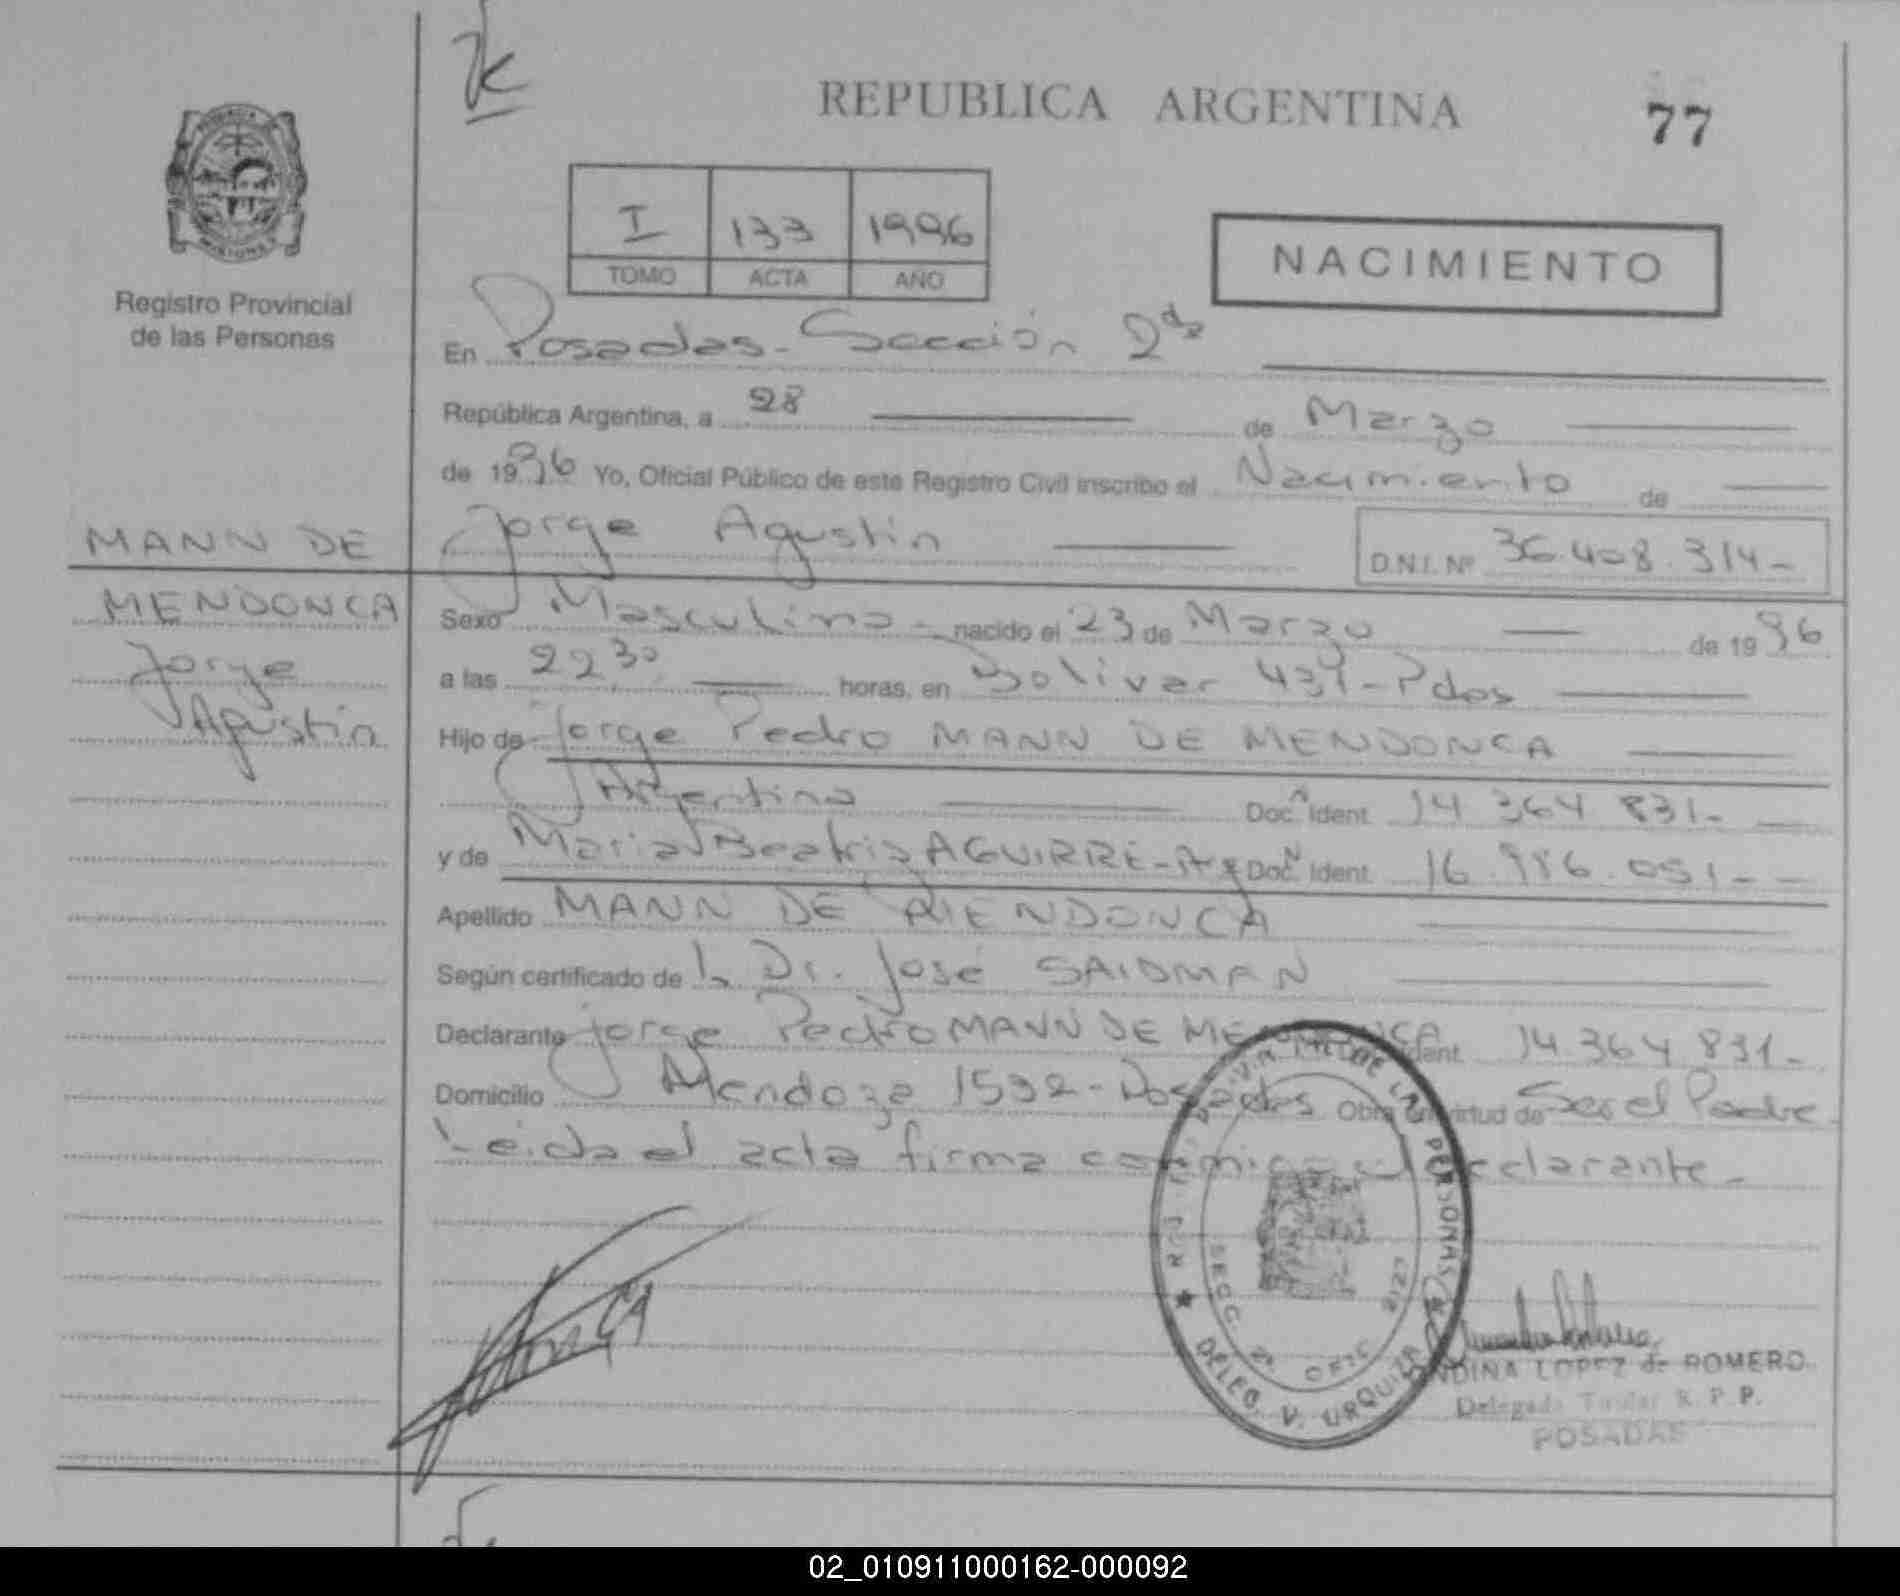 REPUBLICA ARGENTINA
77
I 133 1996
TOMO ACTA AÑO
NACIMIENTO
MISIONES
Registro Provincial
de las Personas
En Posadas - Sección 2da
República Argentina, a 28 de Marzo
de 1996 Yo, Oficial Público de este Registro Civil inscribo el Nacimiento de
Jorge Agustín D.N.I. Nº 36.408.314-
MANN DE
MENDONCA
Jorge
Agustín
Sexo Masculino - nacido el 23 de Marzo de 1996
a las 22,30 horas, en Bolivar 437 - Pdas
Hijo de Jorge Pedro MANN DE MENDONCA
Argentino Doc. Ident. 14 364 831-
y de Maria Beatriz AGUIRRE - Arg Doc. Ident. 16.986.051--
Apellido MANN DE MENDONCA
Según certificado de Dr. José SAIDMAN
Declarante Jorge Pedro MANN DE MENDONCA Ident. 14.364.831-
Domicilio Mendoza 1592 - Posadas Obra en virtud de Ser el Padre -
Leida el acta firma conmigo el declarante -
DE LAS PERSONAS
SECC. 2ª OFIC
DELEG. V. URQUIZA
LOPEZ de ROMERO
Delegada Titular R. P. P.
POSADAS
02_010911000162-000092